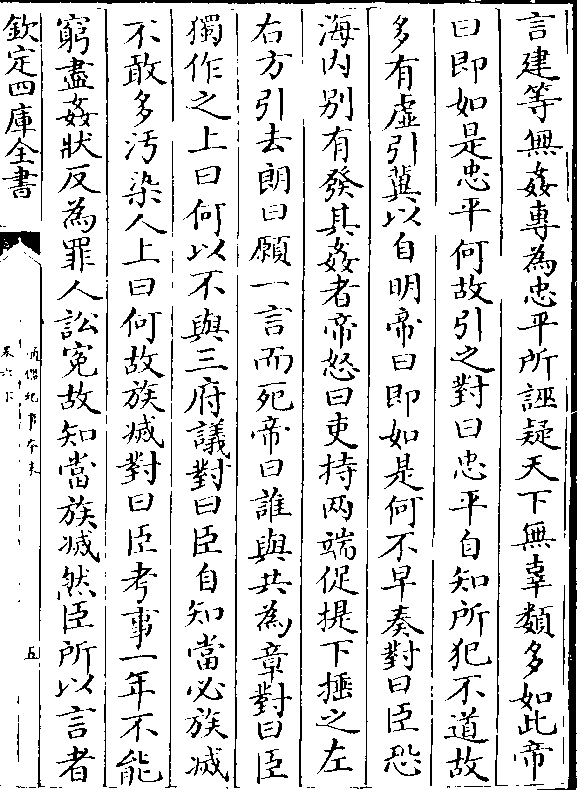 言建等無姦專為忠平所誣疑天下無辜類多如此帝
曰即如是忠平何故引之對曰忠平自知所犯不道故
多有虛引冀以自明帝曰即如是何不早奏對曰臣恐
海内别有發其姦者帝怒曰吏持两端促提下捶之左
右方引去朗曰願一言而死帝曰誰與共為章對曰臣
獨作之上曰何以不與三府議對曰臣自知當必族滅
不敢多汚染人上曰何故族滅對曰臣考事一年不能
窮盡姦狀反為罪人訟寃故知當族滅然臣所以言者
欽定四庫全書
卷六下
五